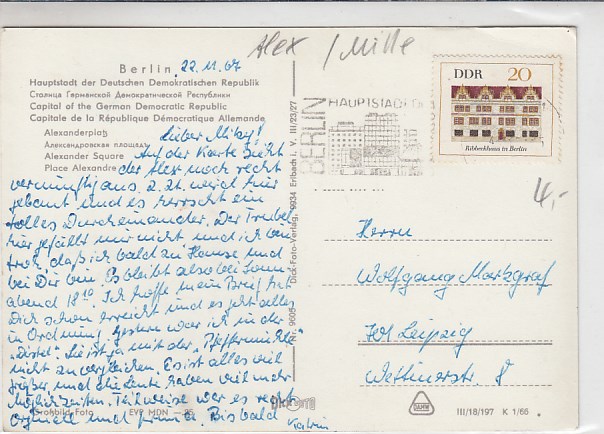 Alex / Mitte
Berlin, 22.11.67
Hauptstadt der Deutschen Demokratischen Republik
Столица Германской Демократической Республики
Capital of the German Democratic Republic
Capitale de la République Démocratique Allemande
Alexanderplatz
Александровская площадь
Alexander Square
Place Alexandre
Lieber
Auf der Karte sieht
der Alex noch recht
vernünftig aus. z. Zt. wird hier
gebaut und es herrscht ein
tolles Durcheinander. Der Trubel
hier gefällt mir nicht und ich bin
froh, daß ich bald zu Hause und
bei Dir bin. Es bleibt also bei Sonn-
abend 18¹⁰. Ich hoffe mein Brief hat
Dich schon erreicht und es geht alles
in Ordnung. Gestern war ich in der
"Distel". Sie ist ja mit der "Pfeffermühle"
nicht zu vergleichen. Es ist alles viel
größer, und die Leute haben viel mehr
Möglichkeiten. Teilweise war es recht
originell und prima. Bis bald
Katrin
Großbild-Foto EVP MDN -,25
Nr. 9605 Dick-Foto-Verlag, 9934 Erlbach i. V. III/23/27
BERLIN
HAUPTSTADT D
DDR 20
Ribbeckhaus in Berlin
4,-
Herrn
Wolfgang Markgraf
701 Leipzig
Wettinerstr. 8
DAMW
III/18/197 K 1/66